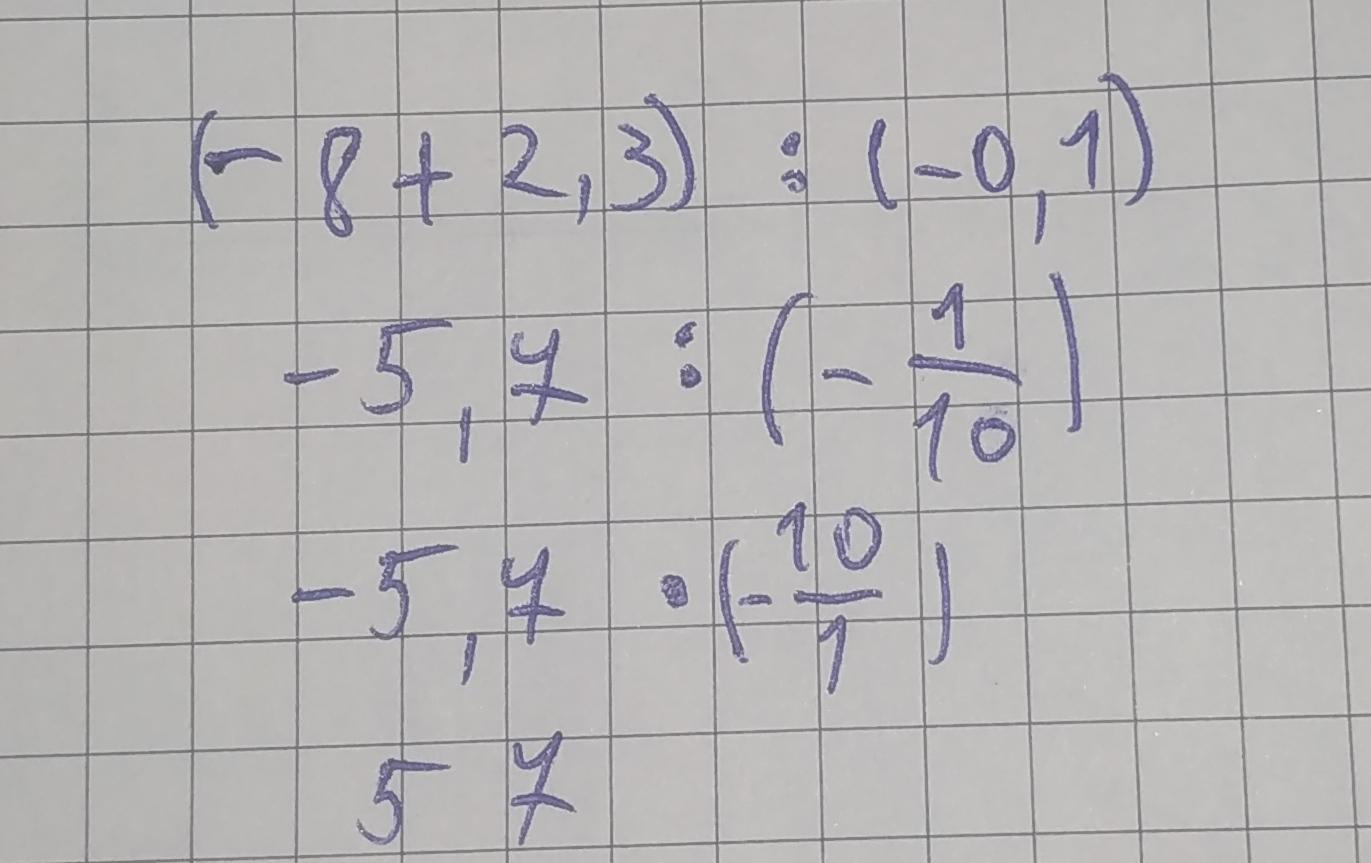 (- 8 + 2,3) : (-0,1)
-5,7 : (- 1/10)
-5,7 · (- 10/1)
57